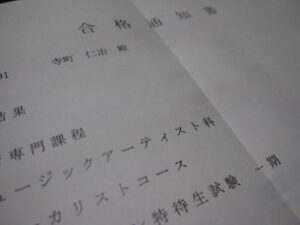 合格通知書
01 寺町 仁治 殿
結果
専門課程
ュージックアーティスト科
カリストコース
特待生試験 一期